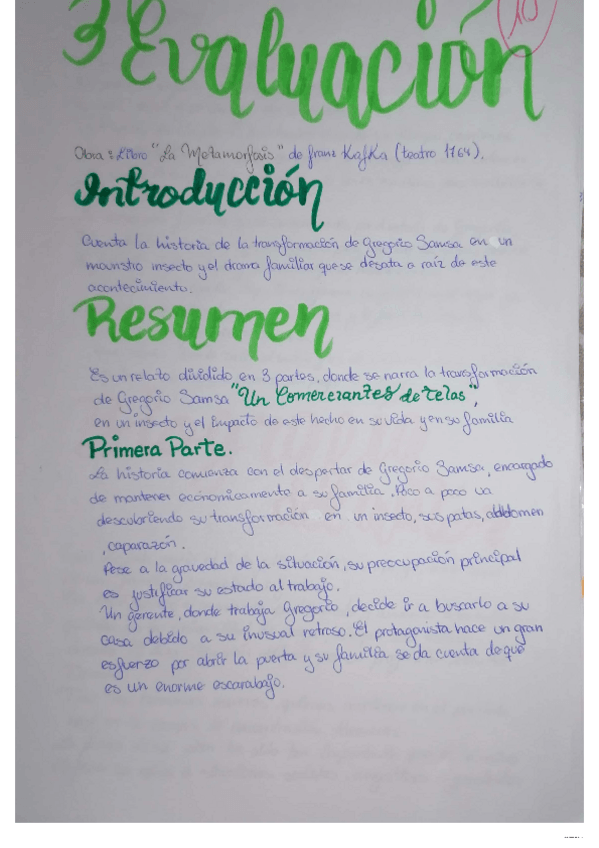 3 Evaluación
10
Obra : Libro "La Metamorfosis" de franz Kafka (teatro 1764).
Introducción
Cuenta la historia de la transformación de Gregorio Samsa en un
mounstro insecto y el drama familiar que se desata a raíz de este
acontecimiento.
Resumen
Es un relato dividido en 3 partes, donde se narra la transformación
de Gregorio Samsa "Un Comerciantes de telas",
en un insecto y el impacto de este hecho en su vida y en su familia
Primera Parte.
La historia comienza con el despertar de Gregorio Samsa, encargado
de mantener económicamente a su familia. Poco a poco va
descubriendo su transformación en un insecto, sus patas, abdomen
, caparazón.
Pese a la gravedad de la situación, su preocupación principal
es justificar su estado al trabajo.
Un gerente, donde trabaja Gregorio, decide ir a buscarlo a su
casa debido a su inusual retraso. El protagonista hace un gran
esfuerzo por abrir la puerta y su familia se da cuenta de que
es un enorme escarabajo.